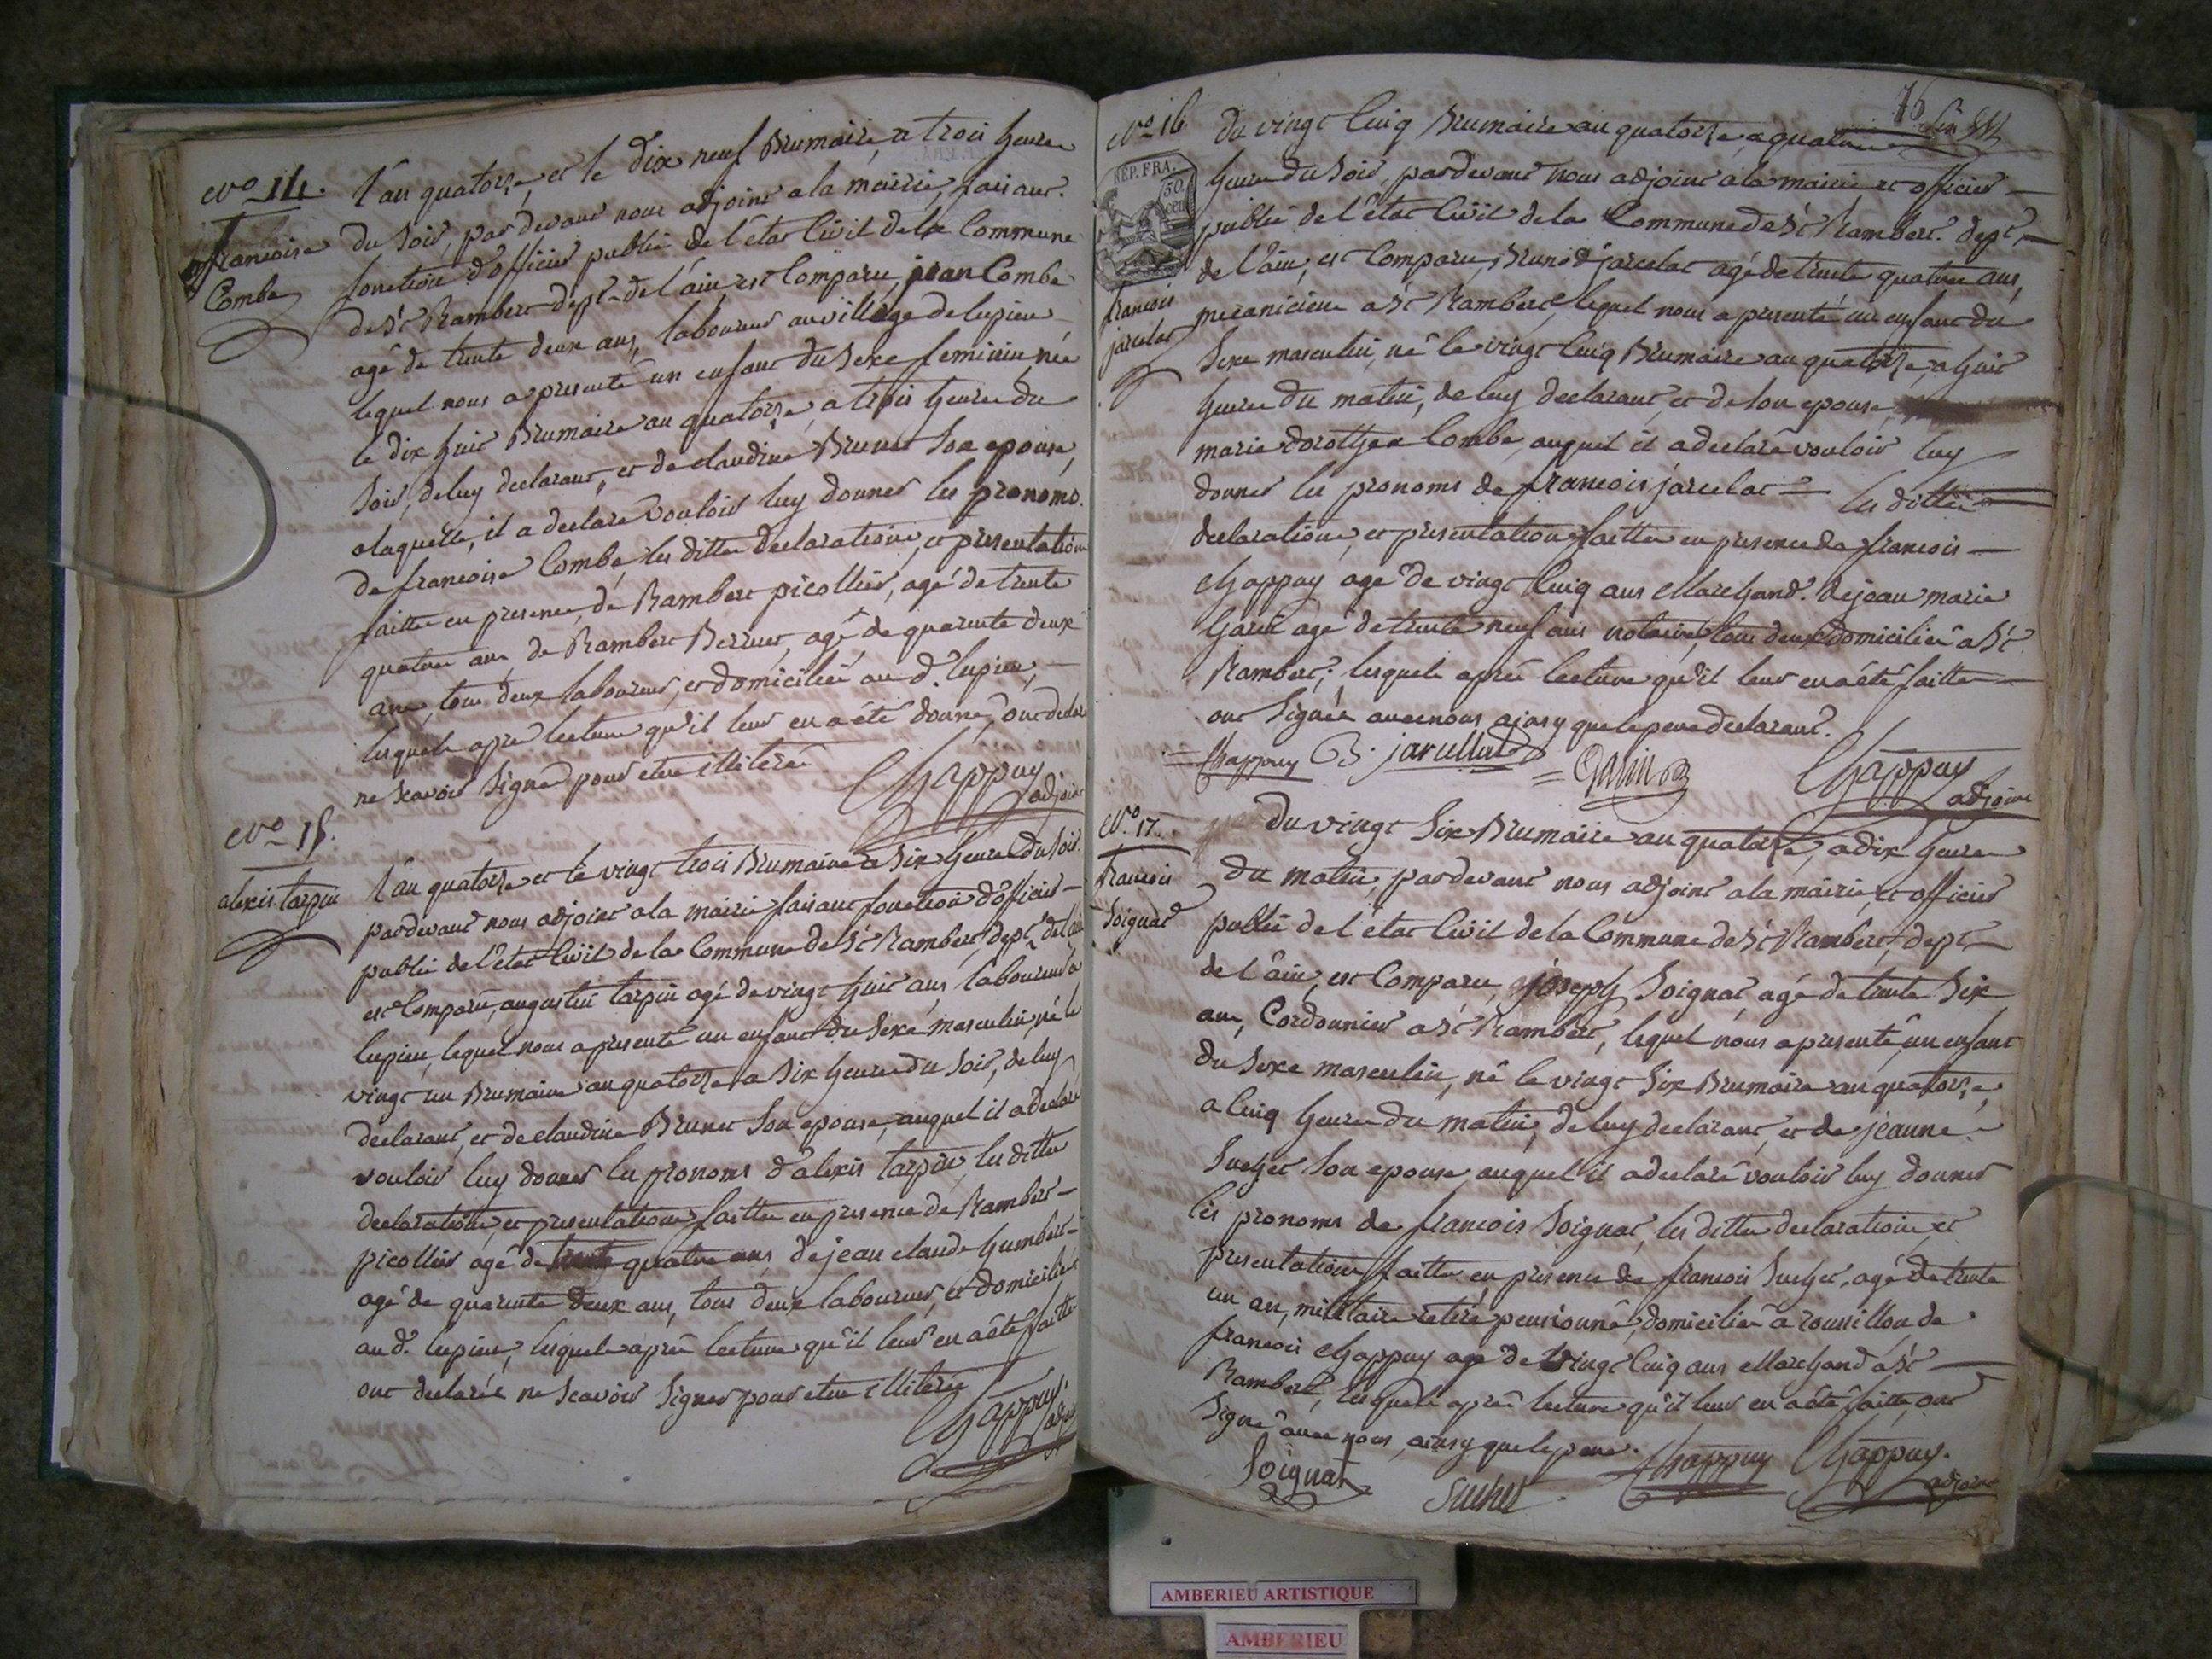 No 14.
francoise
Combe
L'an quatorze, et le dix neuf Brumaire, a trois heures
du soir, pardevant nous adjoint a la mairie, faisant
fonction d'officier public de l'état Civil de la Commune
de St Rambert dept de l'ain, est Comparu, jean Combe
agé de trente deux ans, laboureur au village de lupieu
lequel nous a presenté un enfant du sexe feminin, née
le dix huit Brumaire an quatorze, a trois heures du
soir, de luy declarant, et de claudine Brunet son epouse,
a laquelle, il a declaré vouloir luy donner les pronoms
de francoise Combe, les dittes declarations, et presentations
faittes en presence, de Rambert picollier, agé de trente
quatre ans de Rambert Berruet, agé de quarante deux
ans, tous deux laboureurs, et domiciliés au d. lupieu,
lesquels apres lecture qu'il leur en a été donné, ont declaré
ne scavoir signer pour etre illiteré
Chappuy
adjoint
No 15.
alexis tarpin
L'an quatorze et le vingt trois Brumaire a six heures du soir
pardevant nous adjoint a la mairie faisant fonction d'officier
public de l'état Civil de la Commune de St Rambert, dept de l'ain
est Comparu, augustin tarpin agé de vingt huit ans, laboureur a
lupieu, lequel nous a presenté un enfant du sexe masculin, né le
vingt un Brumaire an quatorze a six heures du soir, de luy
declarant, et de claudine Brunet son epouse, auquel il a declaré
vouloir luy donner les pronoms d'alexis tarpin, les dittes
declarations, et presentations faittes en presence de Rambert
picollier agé de trente quatre ans, de jean claude humbert
agé de quarante deux ans, tous deux laboureurs, et domiciliés
au d. lupieu, lesquels après lecture qu'il leur en a été faitte
ont declarés ne scavoir signer pour etre illiterés
Chappuy
adjoint
76
No 16
REP. FRA.
50
cen
francois
jarcelat
Du vingt Cinq Brumaire an quatorze, a quatre
heures du soir, pardevant nous adjoint a la mairie et officier
public de l'état Civil de la Commune de St Rambert. dept
de l'ain, est Comparu, Bruno jarcelat agé de trente quatre ans,
mecanicien a St Rambert, lequel nous a presenté un enfant du
sexe masculin, né le vingt Cinq Brumaire an quatorze, a huit
heures du matin, de luy declarant, et de son epouse,
marie dorothee Combe, auquel il a declaré vouloir luy
donner les pronoms de francois jarcelat les dittes
declarations, et presentations faittes en presence de francois
Chappuy agé de vingt Cinq ans Marchand. de jean marie
Garin agé de trente neuf ans notaire, tous deux domiciliés a St
Rambert; lesquels après lecture qu'il leur en a été faitte
ont signés avec nous ainsy que le pere declarant.
Chappuy B. jarcellat Garin Chappuy
adjoint
No. 17.
francois
Soignat
Du vingt Six Brumaire an quatorze, a dix heures
du matin, pardevant nous adjoint a la mairie, et officier
public de l'état Civil de la Commune de St Rambert, dept
de l'ain, est Comparu, joseph Soignat, agé de trente Six
ans, Cordonnier a St Rambert, lequel nous a presenté un enfant
du sexe masculin, né le vingt Six Brumaire an quatorze,
a Cinq heures du matin, de luy declarant, et de jeanne
Suchet son epouse, auquel il a declaré vouloir luy donner
les pronoms de francois Soignat, les dittes declarations, et
presentations faittes en presence de francois Suchet, agé de trente
un an, militaire retiré pensionné, domicilié a roussillon de
francois Chappuy agé de Vingt Cinq ans Marchand a St
Rambert, lesquels après lecture qu'il leur en a été faitte, ont
signé avec nous, ainsy que le pere.
Soignat Suchet Chappuy Chappuy.
adjoint
AMBERIEU ARTISTIQUE
AMBERIEU